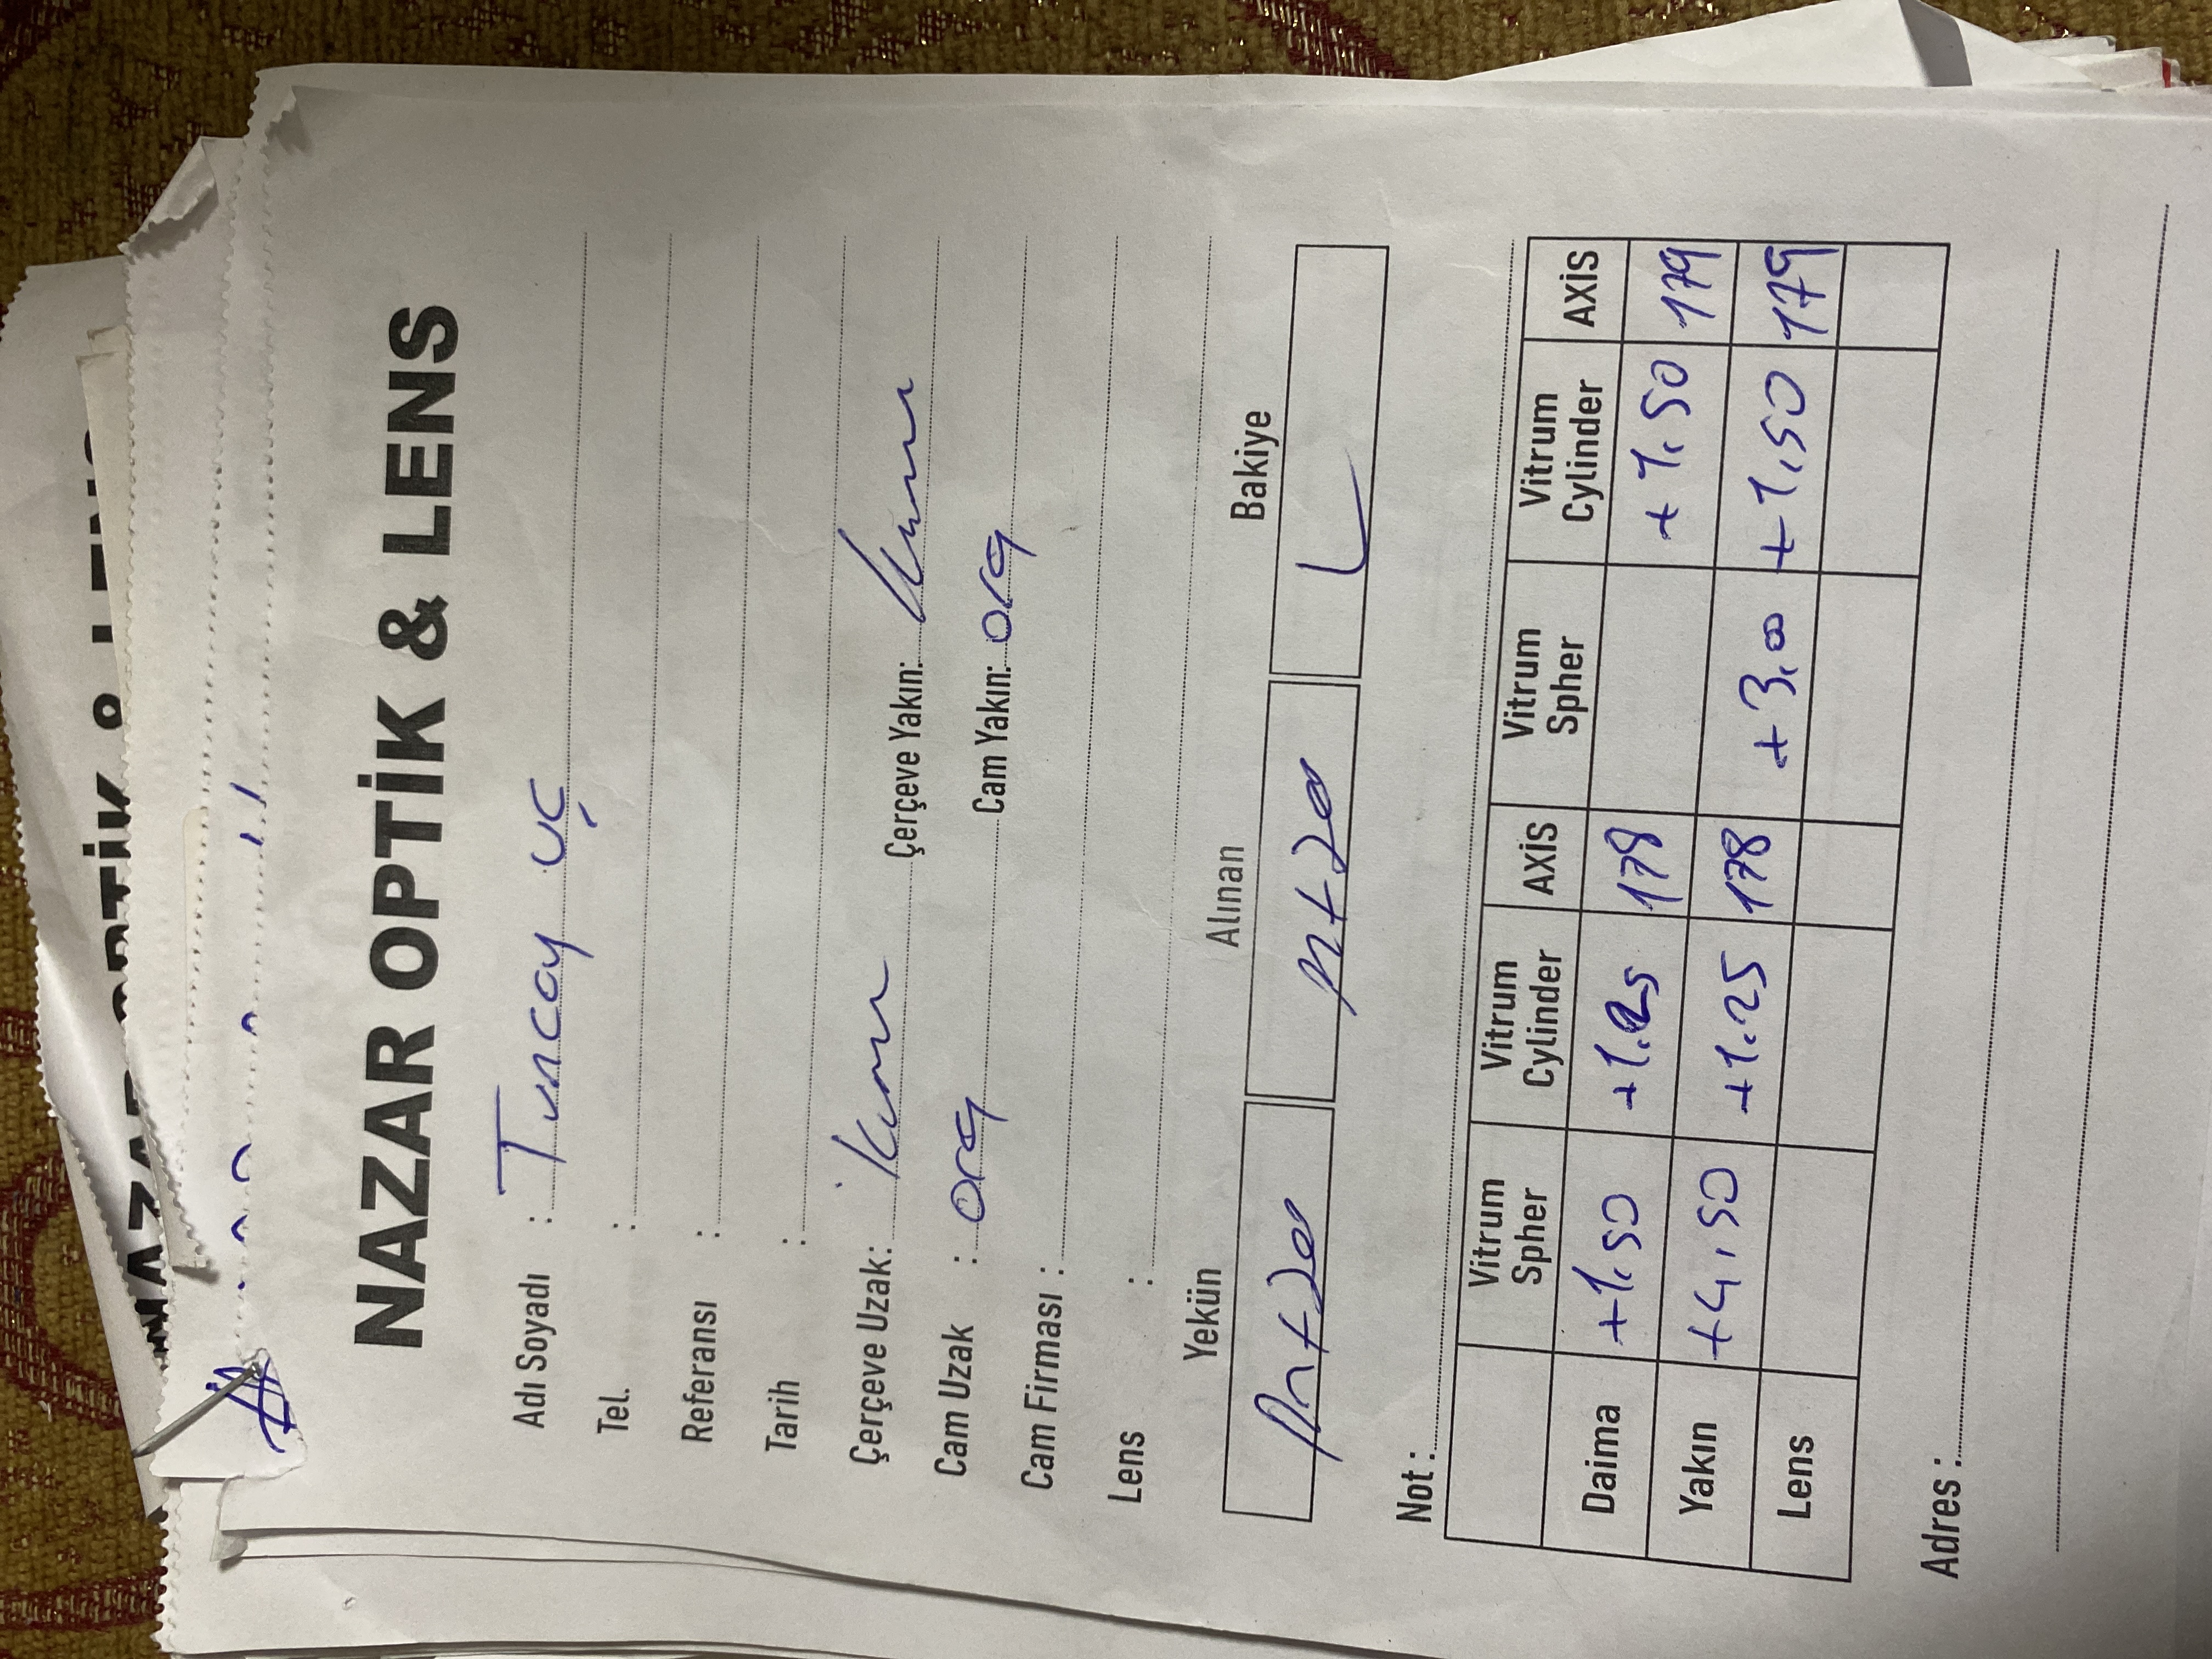 NAZAR OPTİK & LENS
NAZAR OPTİK & LENS
Adı Soyadı : Tuncay UÇ
Tel. :
Referansı :
Tarih :
Çerçeve Uzak: Çerçeve Yakın:
Cam Uzak : org Cam Yakın: org
Cam Firması :
Lens :
Yekün Alınan Bakiye
Not :
Vitrum Spher Vitrum Cylinder AXİS Vitrum Spher Vitrum Cylinder AXİS
Daima +1.50 +1.25 178 +1.50 179
Yakın +4,50 +1.25 178 +3,00 +1,50 179
Lens
Adres :